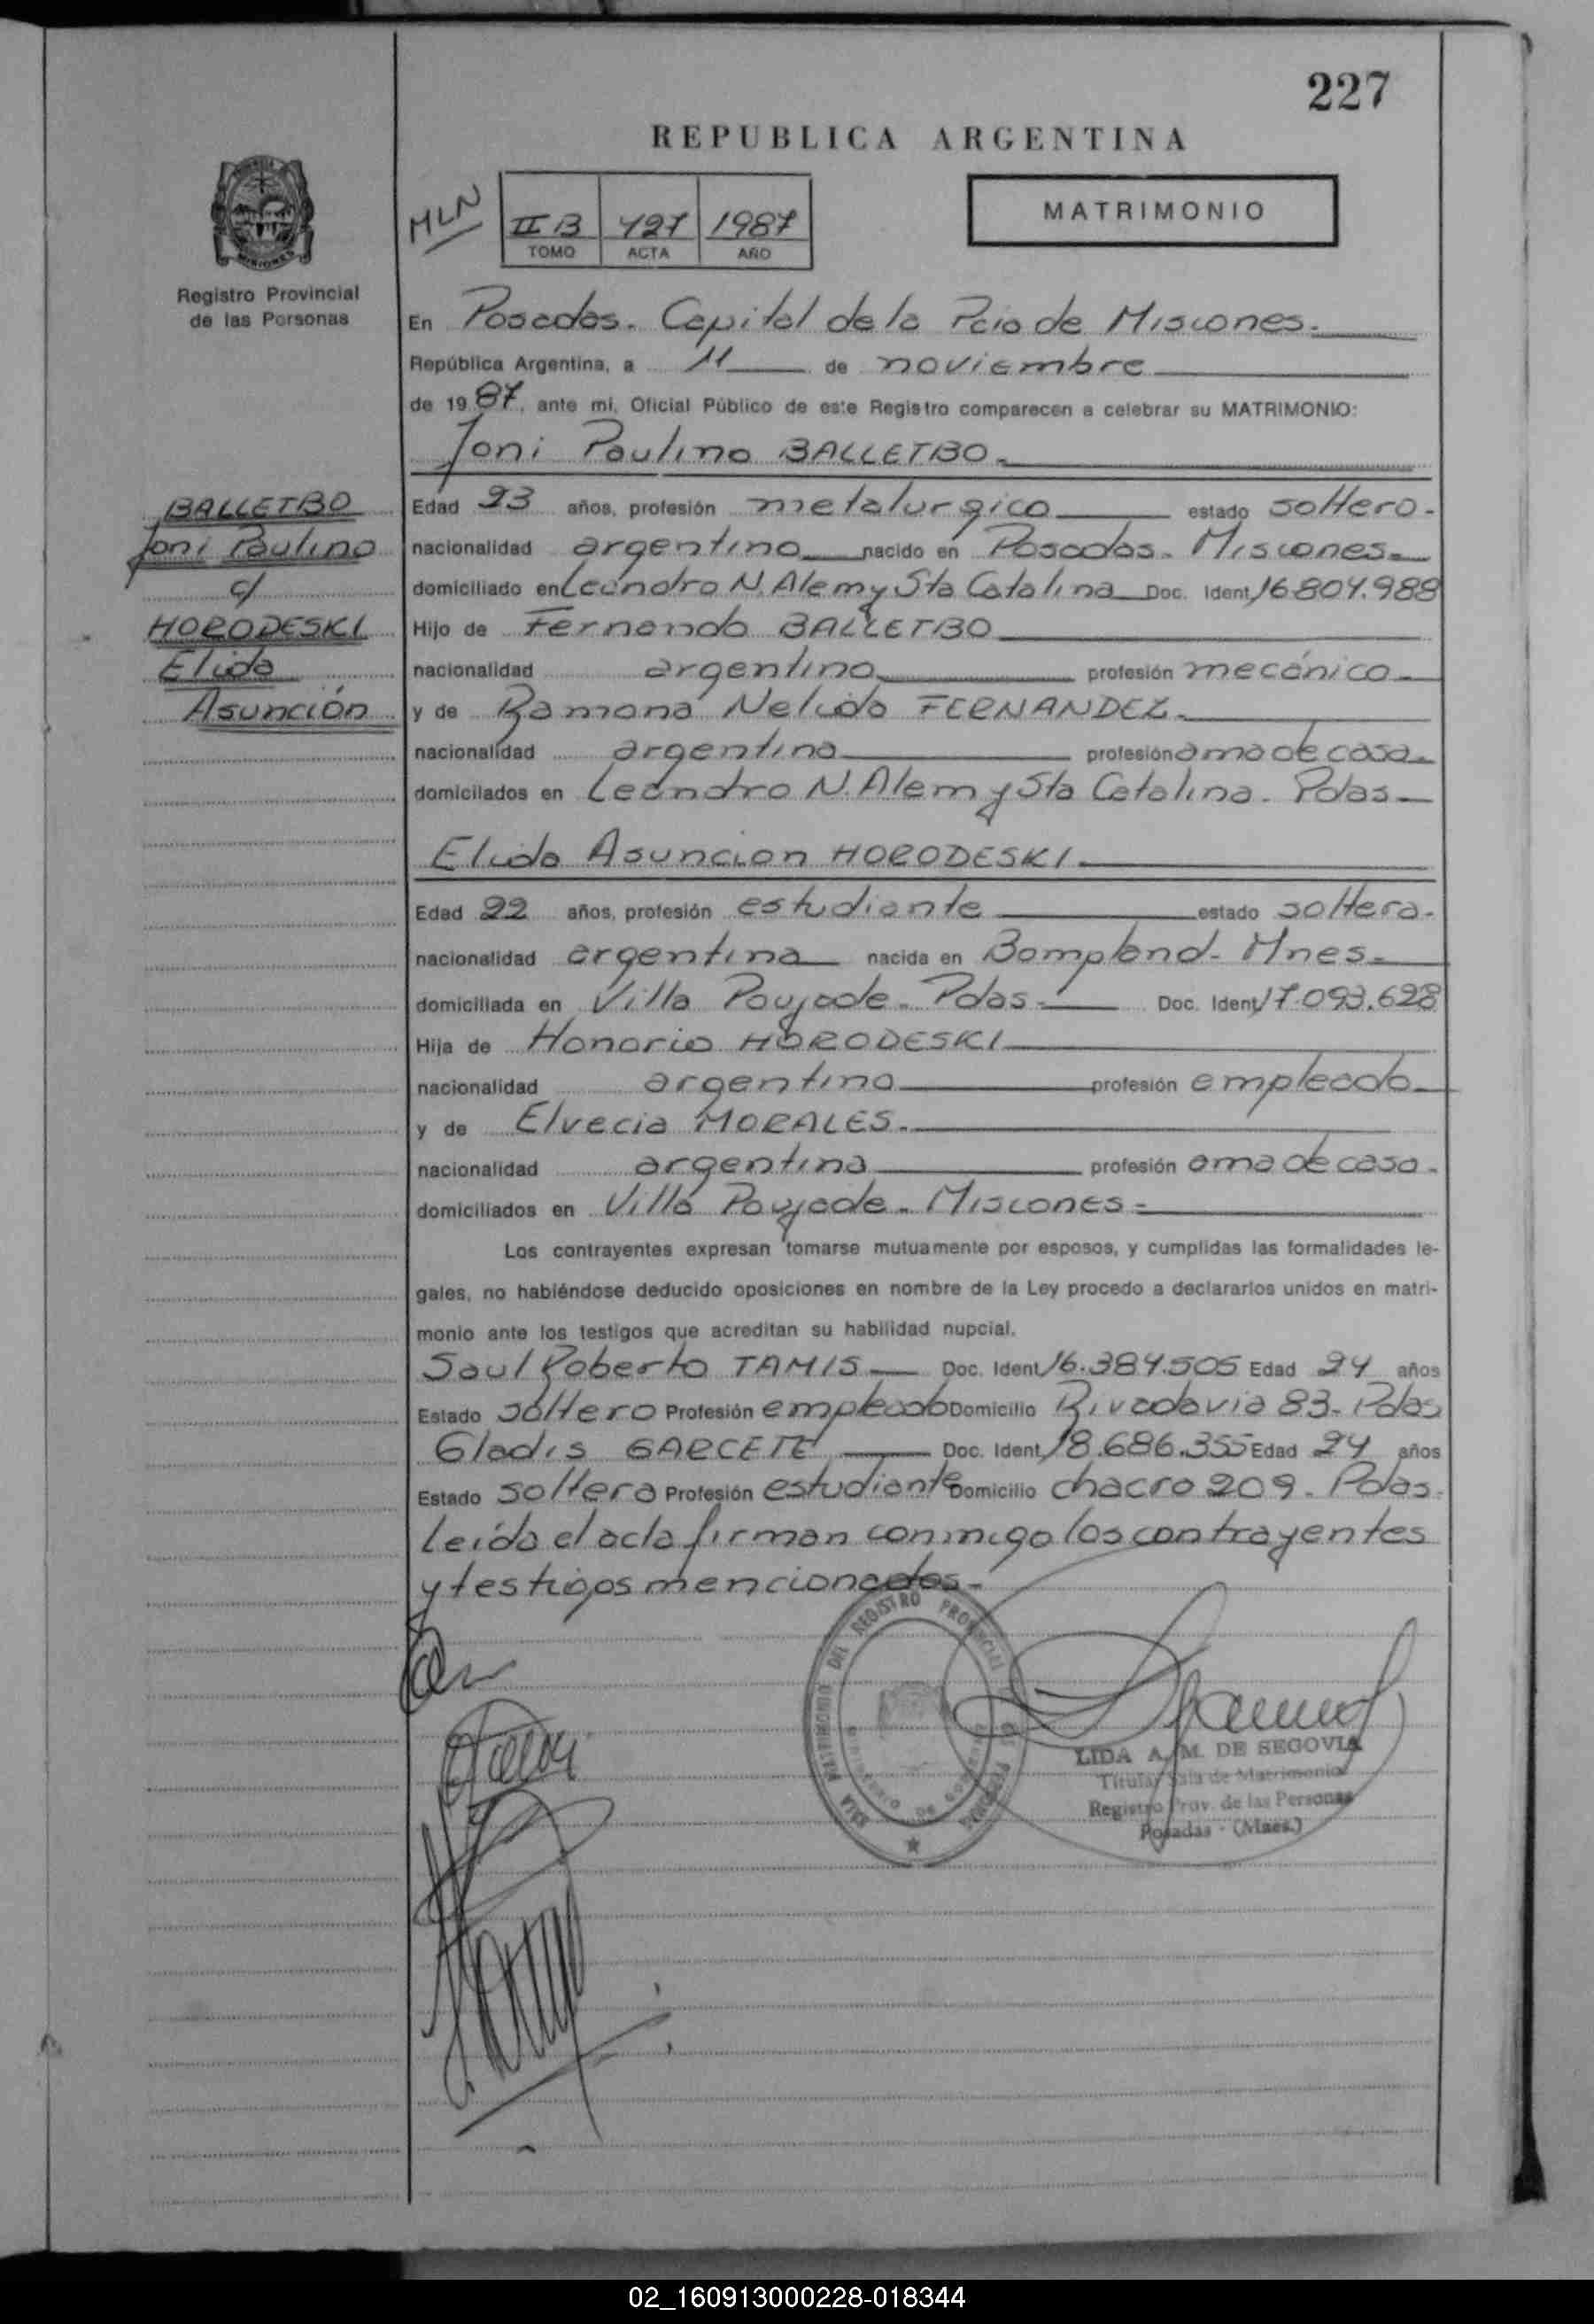 227
REPUBLICA ARGENTINA
MLN
II B 427 1987
TOMO ACTA AÑO
MATRIMONIO
Registro Provincial
de las Personas
En Posadas. Capital de la Pcia de Misiones.
República Argentina, a 11 de noviembre
de 1987, ante mi, Oficial Público de este Registro comparecen a celebrar su MATRIMONIO:
Joni Paulino BALLETBO.
BALLETBO
Joni Paulino
c/
HORODESKI
Elida
Asunción
Edad 23 años, profesión metalurgico estado soltero.
nacionalidad argentino nacido en Posadas. Misiones.
domiciliado en Leandro N. Alem y Sta Catalina Doc. Ident. 16.804.988
Hijo de Fernando BALLETBO
nacionalidad argentino profesión mecánico
y de Ramona Nelida FERNANDEZ.
nacionalidad argentina profesión ama de casa.
domicilados en Leandro N. Alem y Sta Catalina. Pdas
Elida Asuncion HORODESKI
Edad 22 años, profesión estudiante estado soltera.
nacionalidad argentina nacida en Bompland. Mnes.
domiciliada en Villa Poujade. Pdas. Doc. Ident. 17.093.628
Hija de Honorio HORODESKI
nacionalidad argentino profesión empleado
y de Elvecia MORALES.
nacionalidad argentina profesión ama de casa.
domiciliados en Villa Poujade. Misiones
Los contrayentes expresan tomarse mutuamente por esposos, y cumplidas las formalidades le-
gales, no habiéndose deducido oposiciones en nombre de la Ley procedo a declararlos unidos en matri-
monio ante los testigos que acreditan su habilidad nupcial.
Saul Roberto TAMIS Doc. Ident. 16.384.505 Edad 24 años
Estado soltero Profesión empleado Domicilio Rivadavia 83. Pdas
Gladis GARCETE Doc. Ident. 18.686.355 Edad 24 años
Estado soltera Profesión estudiante Domicilio chacra 209. Pdas.
Leída el acta firman conmigo los contrayentes
y testigos mencionados.
SALA MATRIMONIO DEL REGISTRO PROVINCIAL DE LAS PERSONAS
MINISTERIO DE GOBIERNO
LIDA A. M. DE SEGOVIA
Titular Sala de Matrimonio
Registro Prov. de las Personas
Posadas - (Mnes.)
02_160913000228-018344